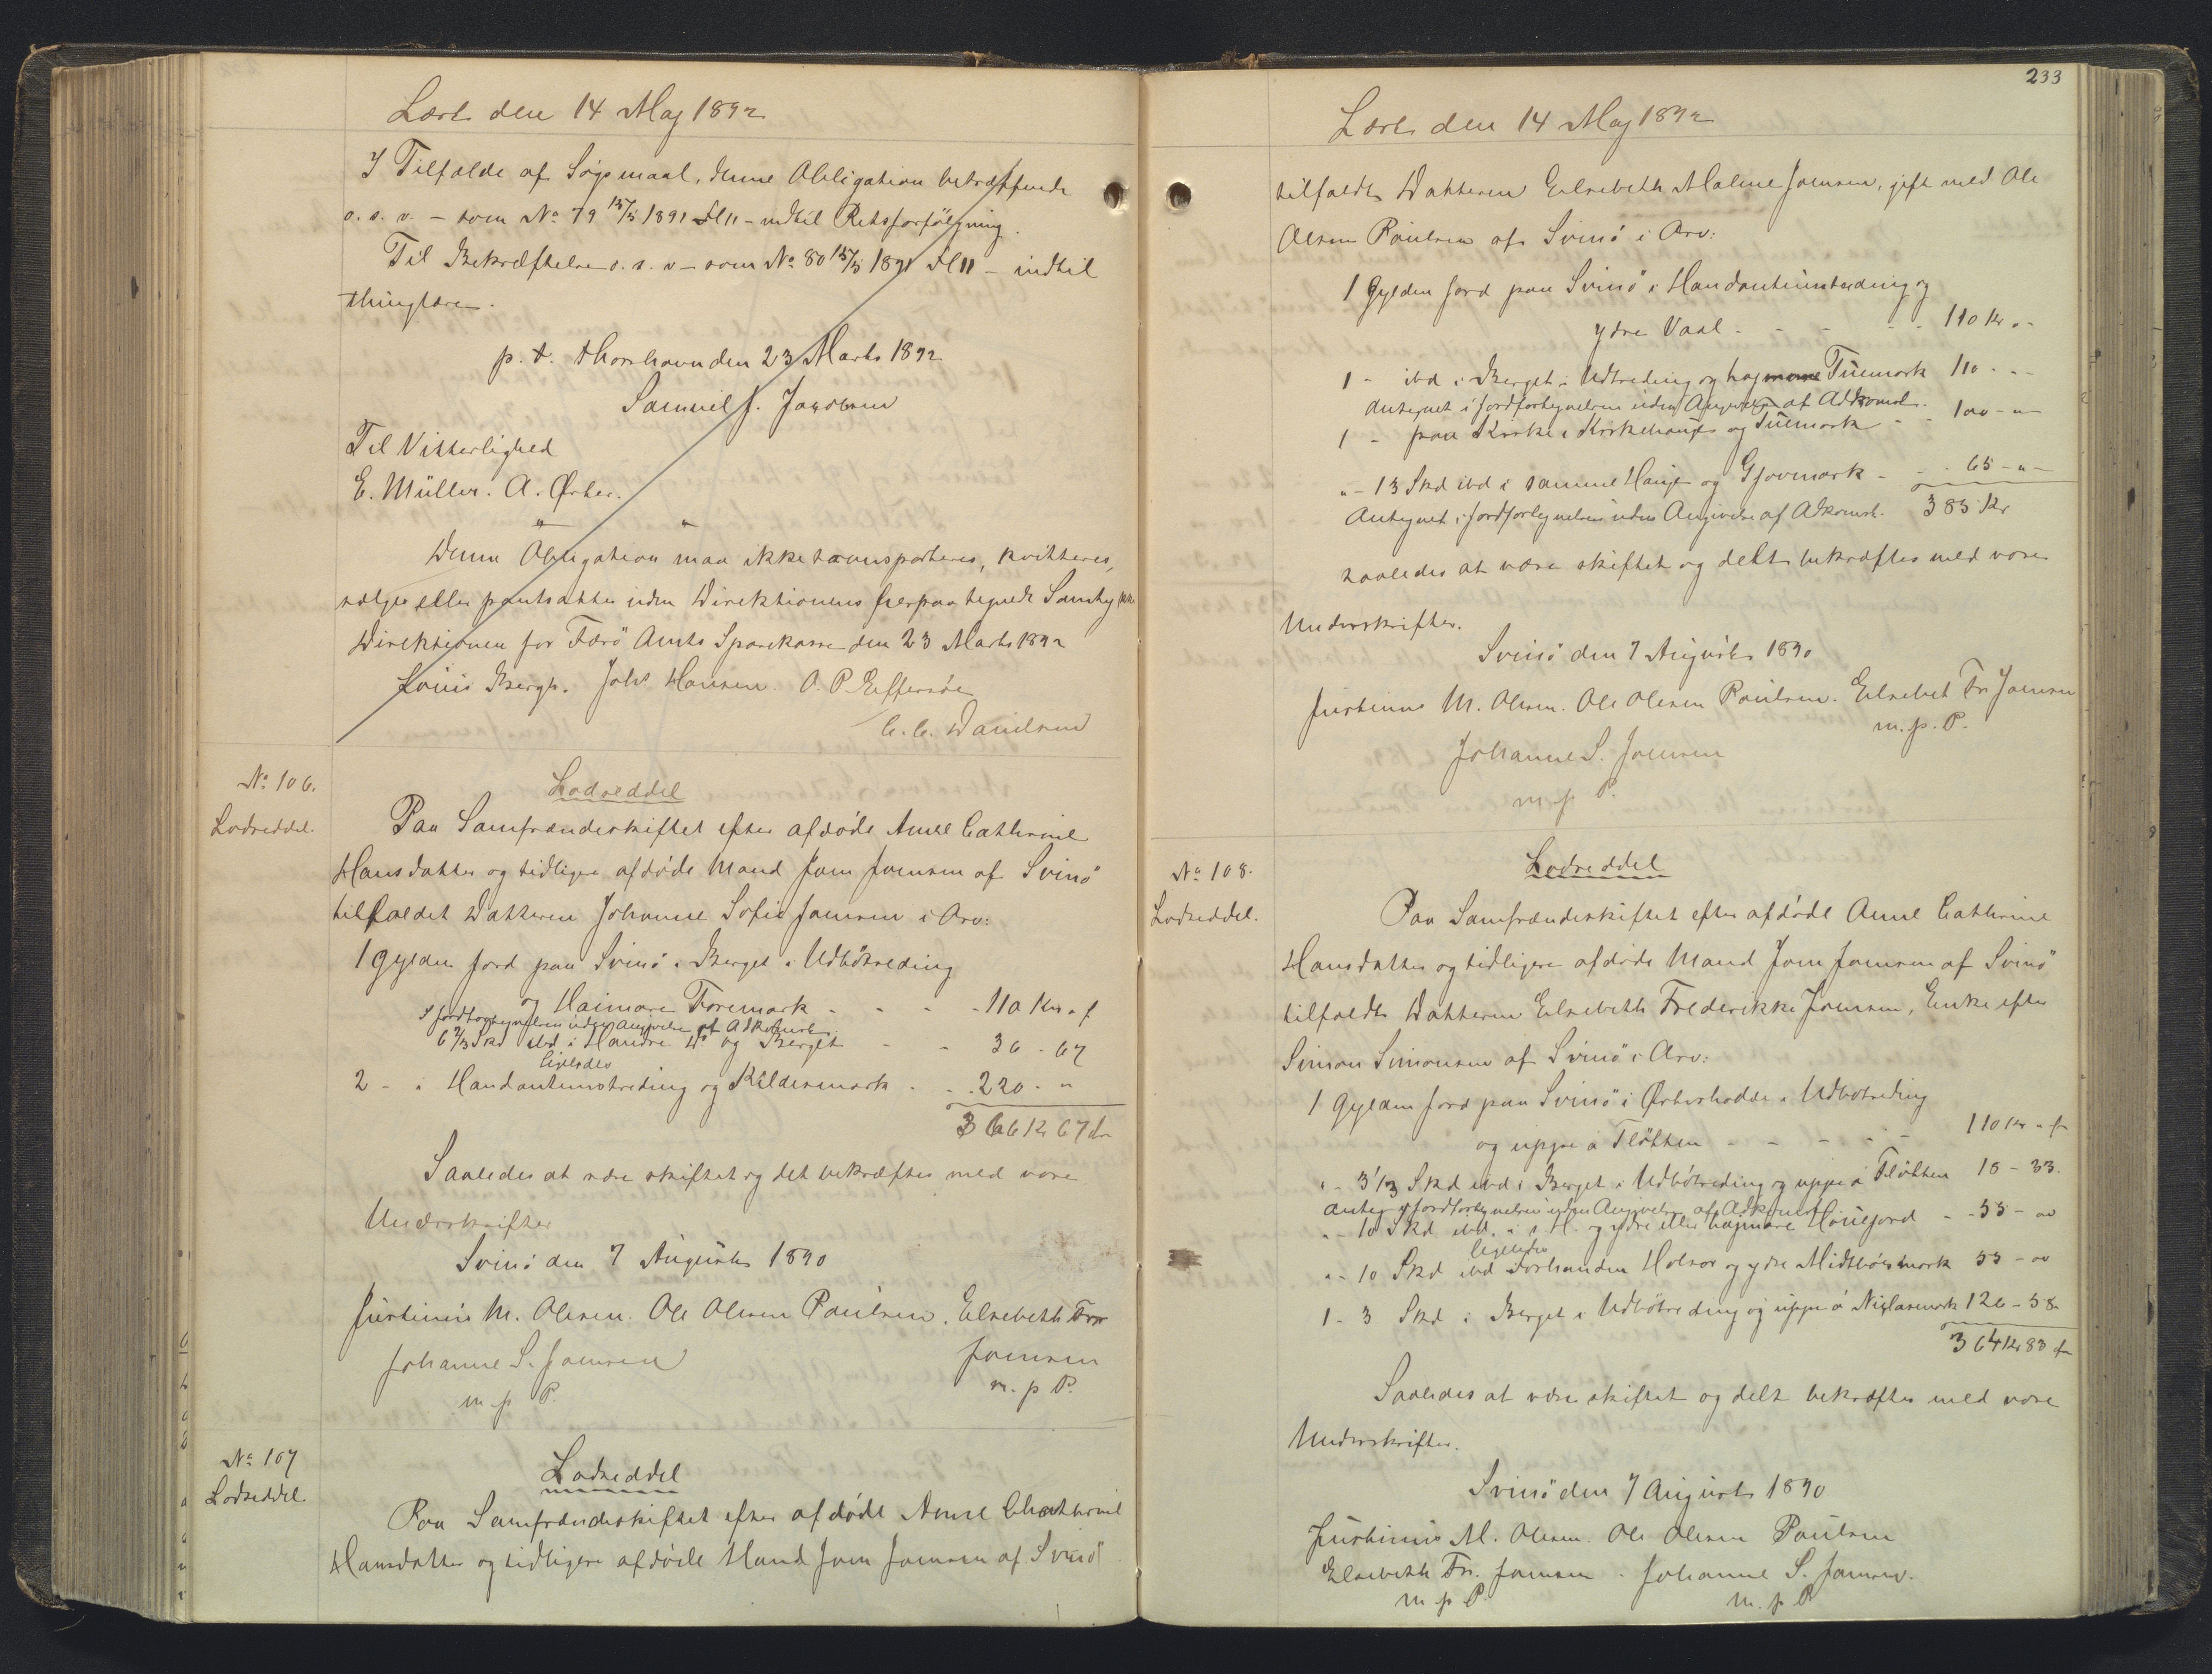 Læst den 14 Maj 1892
I Tilfælde af Søgsmaal, denne Obligation betræffende
o. s. v. – som No 79 15/5 1891 – indtil Retsforfölgning.
Til Bekræftelse o. s. v – som No 80 15/5 1891 – indtil
thinglære.
p. t. Thorshavn den 23 Marts 1892
Samuel J. Jacobsen
Til Vitterlighed
E. Müller. A. Ørter.
" "
Denne Obligation maa ikke transporteres, kvitteres,
sælges eller pantsættes uden Direktionens herpaa tegnede Samtykke
Direktionen for Færö Amts Sparekasse den 23 Marts 1892
Louis Bergh. Johs Hansen. O. P. Effersöe
C. C. Danielsen
No 106.
Lodseddel.
Lodseddel
Paa Samfrændeskiftet efter afdøde Anne Cathrine
Hansdatter og tidligere afdøde Mand Joen Joensen af Svinö
tilfaldet Datteren Johanne Sofie Joensen i Arv:
1 Gylden Jord paa Svinö i Berget i Udbötreding
og Haimare Toremark - - - 110 Kr "
I Jordfortegnelsen uden Angivelse af Adkomst
6 2/3 Skd ibd i Handre Do og Berget - - 36 - 67
ligeledes
2 - i Handantumstreding og Kildermark - - 220 - "
366 Kr 67 Ør
Saaledes at være skiftet og det bekræftes med vore
Underskrifter
Svinö den 7 August 1890
Justinus M. Olesen. Ole Olesen Poulsen. Elsebeth Fr
Johanne S. Joensen Joensen
m. p. P. m. p. P.
No 107
Lodseddel.
Lodseddel
Paa Samfrændeskiftet efter afdøde Anne Chathrine
Hansdatter og tidligere afdøde Mand Joen Joensen af Svinö
233
Læst den 14 Maj 1892
tilfaldt Datteren Elsebeth Malene Joensen, gift med Ole
Olesen Poulsen af Svinö i Arv:
1 Gylden Jord paa Svinö i Handantumstreding og
ydre Vaal - - - - 110 Kr " -
1 - ibd i Berget i Udtreding og Tuemark 110 - - -
Antegnet i Jordfortegnelsen uden Angivelse af Adkomst.
1 - paa Kirke i Kirkehauge og Tuemark - - 100 - " -
" - 13 Skd ibd i samme Hauge og Gjovmark - - - 65 - " -
Antegnet i Jordfortegnelsen uden Angivelse af Adkomst. 385 Kr
saaledes at være skiftet og delt bekræftes med vore
Underskrifter.
Svinö den 7 August 1890
Justinus M. Olesen. Ole Olesen Poulsen. Elsebet Fr Joensen
m. p. P.
Johanne S. Joensen
m. p. P.
No 108.
Lodseddel.
Lodseddel
Paa Samfrændeskiftet efter afdöde Anne Cathrine
Hansdatter og tidligere afdöde Mand Joen Joensen af Svinö
tilfaldt Datteren Elsebeth Frederikke Joensen, Enke efter
Simon Simonsen af Svinö i Arv:
1 Gylden Jord paa Svinö i Østerhodde i Udbotreding
og uppe á Fløtten - - - - - 110 Kr "
" - 3 1/3 Skd ibd i Berget i Udbötreding og uppe á Fløtten 18 - 33.
Anteg i Jordfortegnelsen uden Angivelse af Adkomst
" - 10 Skd ibd. i s. H. og ydre eller hajmare Hönejord - - 55 - 00
ligeledes
" - 10 Skd ibd Forhanden Holsor og ydre Midtbörsmark 55 - 00
1 - 3 Skd i Berget i Udbötreding og uppe á Niglasmark 126 - 50
364 Kr 83 Ør
Saaledes at være skiftet og delt bekræftes med vore
Underskrifter.
Svinö den 7 August 1890
Justinus M. Olesen. Ole Olesen Poulsen
Elsebeth Fr. Joensen. Johanne S. Joensen.
m. p. P. m. p. P